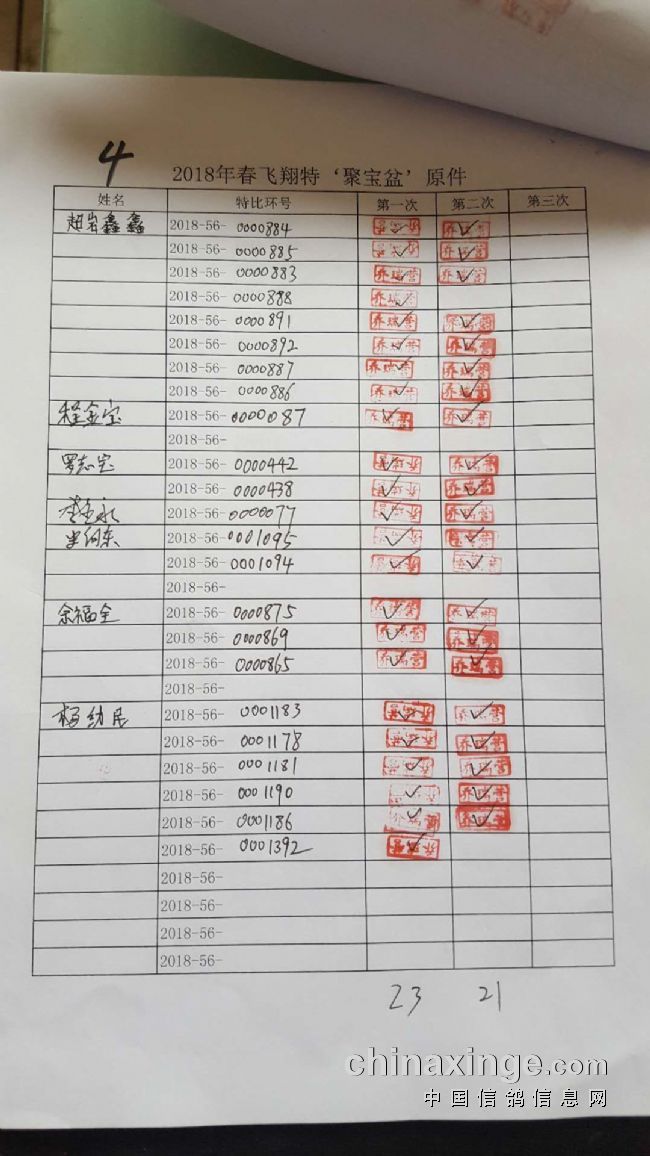 4
2018年春飞翔特‘聚宝盆’原件
姓名 特比环号 第一次 第二次 第三次
赵岩鑫鑫 2018-56- 0000884
2018-56- 0000885
2018-56- 0000883 乔瑞营 乔瑞营
2018-56- 0000888 乔瑞营
2018-56- 0000891 乔瑞营 乔瑞营
2018-56- 0000892 乔瑞营 乔瑞营
2018-56- 0000887 乔瑞营 乔瑞营
2018-56- 0000886 乔瑞营 乔瑞营
程金宝 2018-56- 0000087 乔瑞营
2018-56-
罗志宏 2018-56- 0000442 乔瑞营
2018-56- 0000438 乔瑞营
2018-56- 0000077 乔瑞营
2018-56- 0001095
2018-56- 0001094
2018-56-
余福全 2018-56- 0000875 乔瑞营
2018-56- 0000869 乔瑞营
2018-56- 0000865 乔瑞营
2018-56-
杨幼民 2018-56- 0001183 乔瑞营
2018-56- 0001178 乔瑞营
2018-56- 0001181 乔瑞营
2018-56- 0001190 乔瑞营
2018-56- 0001186 乔瑞营 乔瑞营
2018-56- 0001392
2018-56-
2018-56-
2018-56-
2018-56-
23 21
chinaxinge.com
中国信鸽信息网